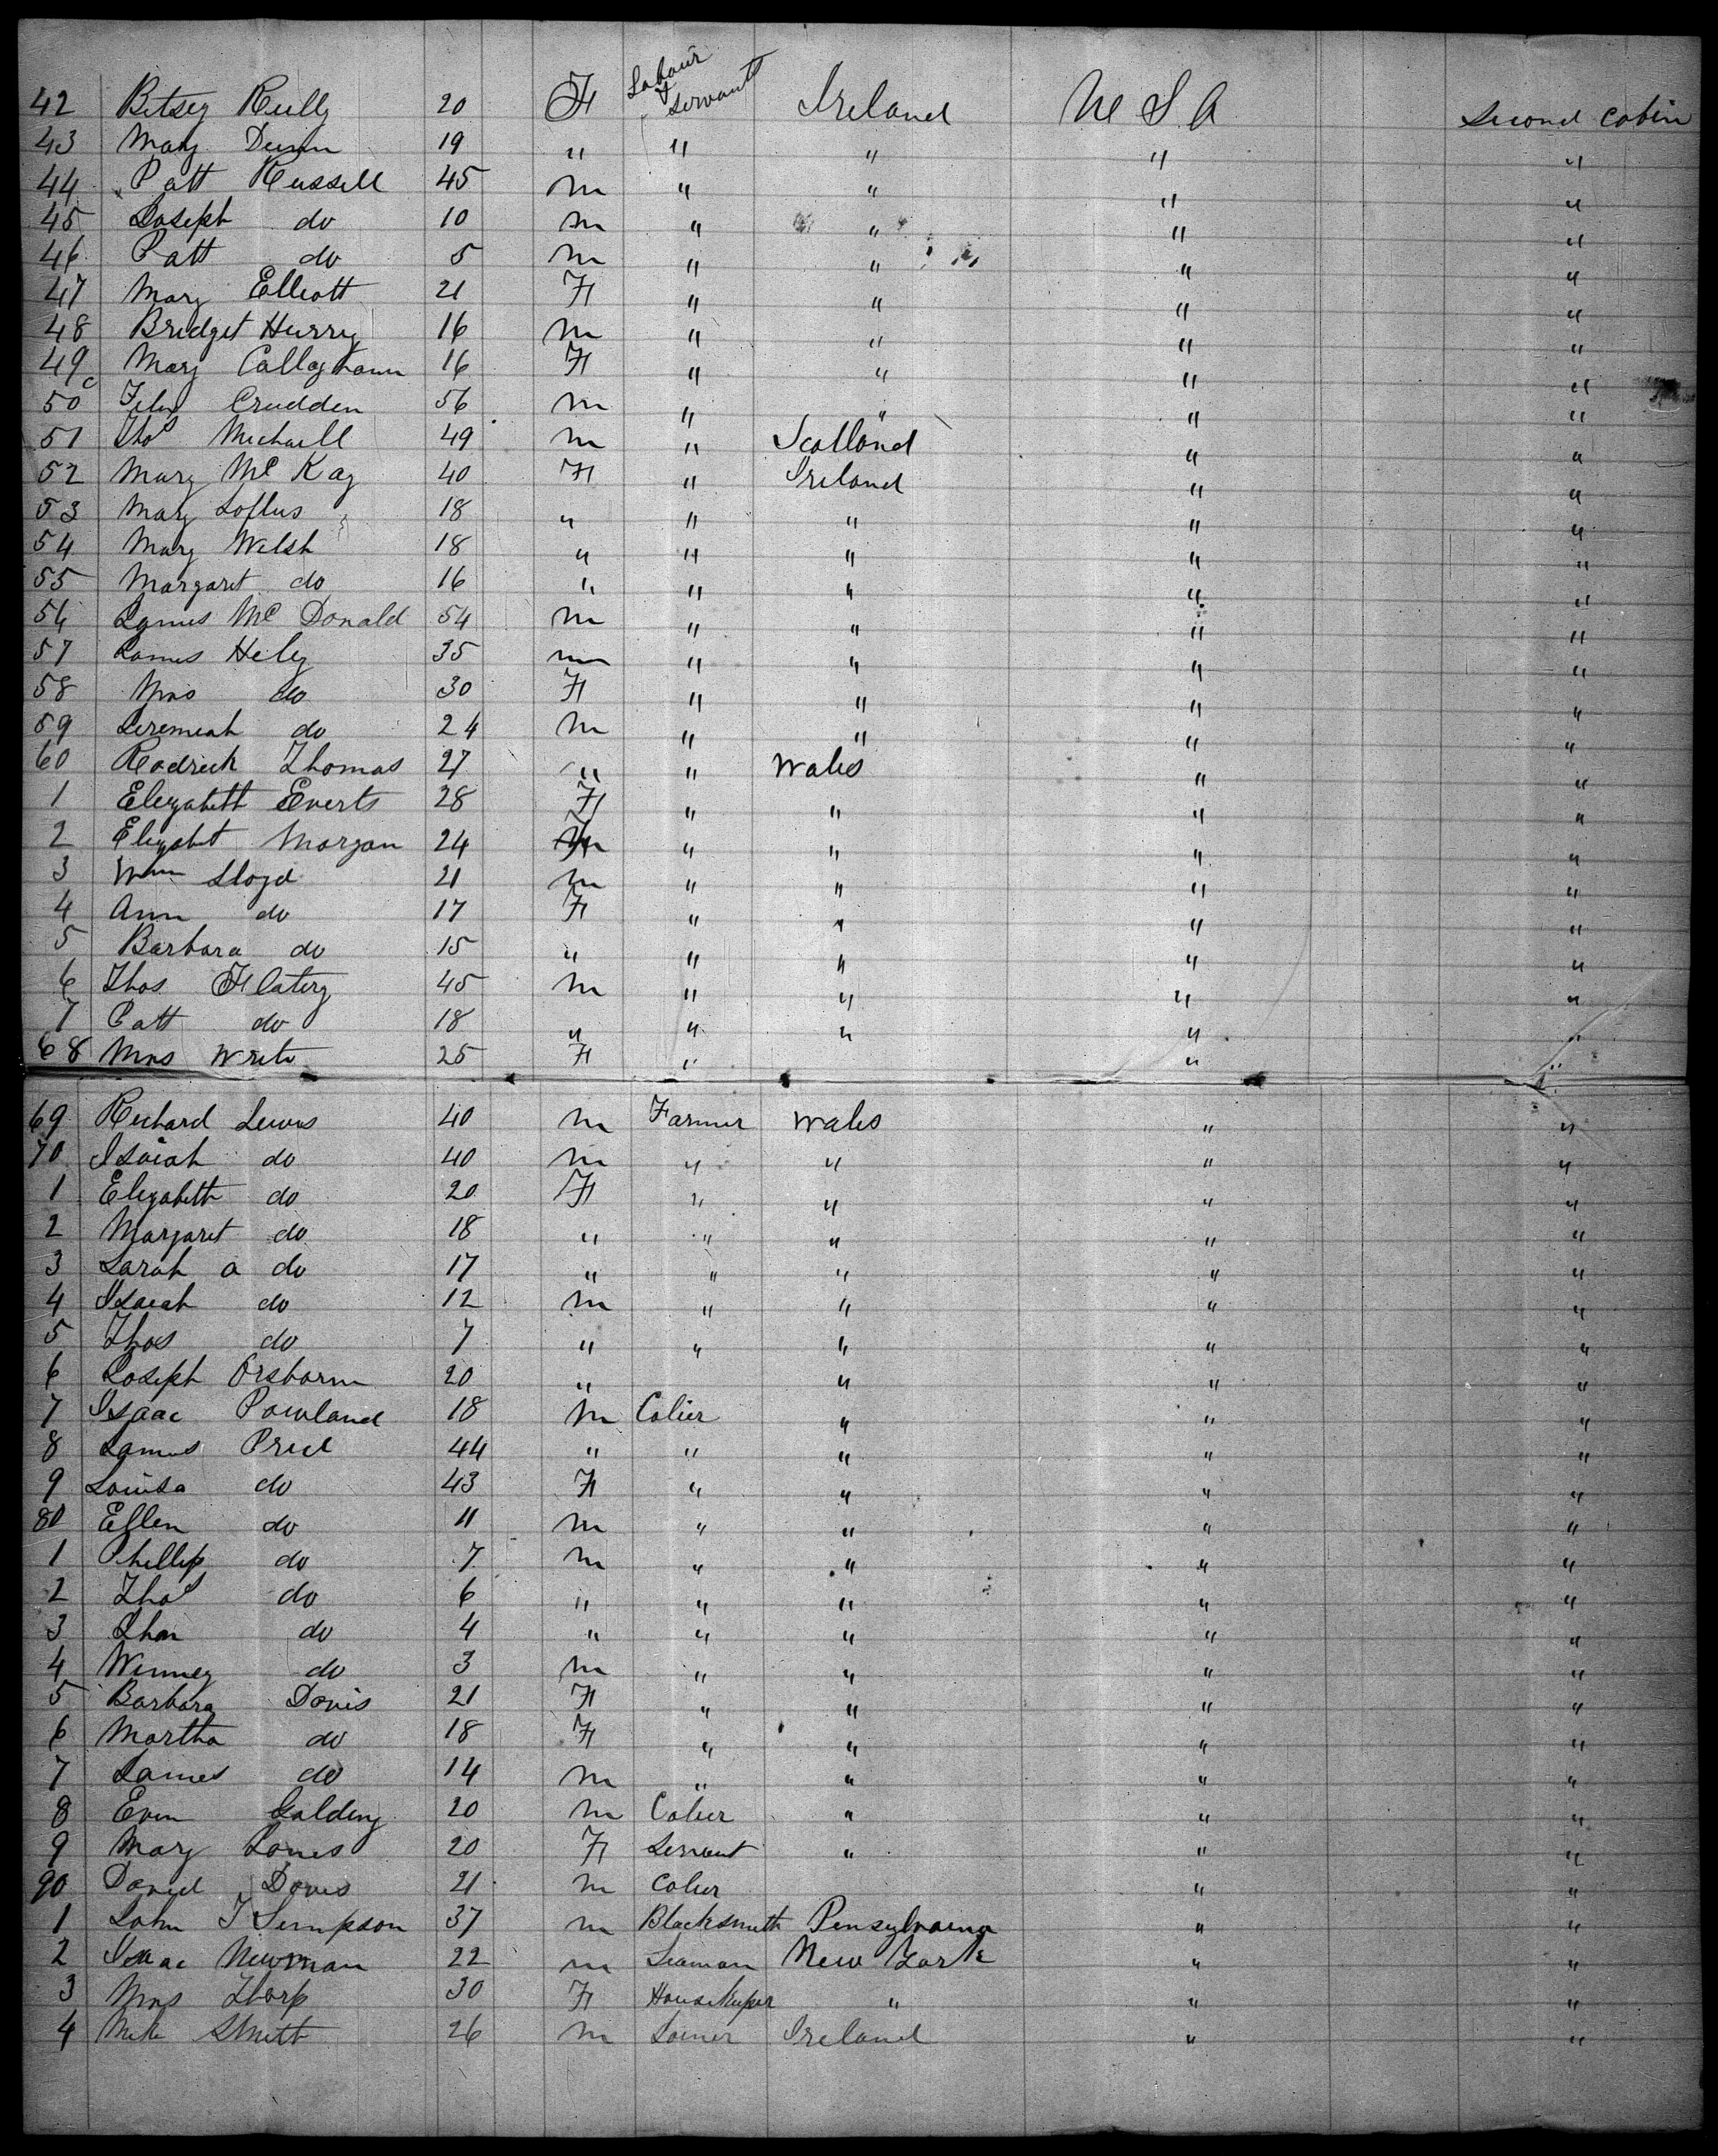 42 Betsey Reilly 20 F Labour & Servant Ireland U S A Second Cabin
43 Mary Dunn 19 " " " " "
44 Patt Russell 45 m " " " "
45 Joseph do 10 m " " " "
46 Patt do 5 m " " " "
47 Mary Elliott 21 F " " " "
48 Bridget Hurry 16 m " " " "
49 Mary Callaghann 16 F " " " "
50 Felix Crudden 56 m " " " "
51 Thos Michaell 49 m " Scotland " "
52 Mary Mc Kay 40 F " Ireland " "
53 Mary Loftus 18 " " " " "
54 Mary Welsh 18 " " " " "
55 Margaret do 16 " " " " "
56 James Mc Donald 54 m " " " "
57 James Hely 35 m " " " "
58 Mrs do 30 F " " " "
59 Jeremeah do 24 m " " " "
60 Rodrick Thomas 27 " " Wales " "
1 Elezabeth Everts 28 F " " " "
2 Elezabet Morgan 24 " " " "
3 Wm Lloyd 21 m " " " "
4 Ann do 17 F " " " "
5 Barbara do 15 " " " " "
6 Thos Flatery 45 m " " " "
7 Patt do 18 " " " " "
68 Mrs Write 25 F " " "
69 Richard Lewis 40 m Farmer Wales " "
70 Isaiah do 40 m " " " "
1 Elezabeth do 20 F " " " "
2 Margaret do 18 " " " " "
3 Sarah a do 17 " " " " "
4 Isaiah do 12 m " " " "
5 Thos do 7 " " " " "
6 Joseph Orsborn 20 " " " "
7 Isaac Powland 18 m Colier " " "
8 James Price 44 " " " " "
9 Louisa do 43 F " " " "
80 Ellen do 11 m " " " "
1 Phillip do 7 m " " " "
2 Thos do 6 " " " " "
3 do 4 " " " " "
4 Winney do 3 m " " " "
5 Barbara Davis 21 F " " " "
6 Martha do 18 F " " " "
7 James do 14 m " " " "
8 Even Galding 20 m Colier " " "
9 Mary Jones 20 F Servant " " "
90 David Davis 21 m Colier " "
1 John T Simpson 37 m Blacksmith Pensylvania " "
2 Isaac Newman 22 m Seaman New York " "
3 Mrs Thorp 30 F House Keeper " " "
4 Mike Smith 26 m Ireland " "